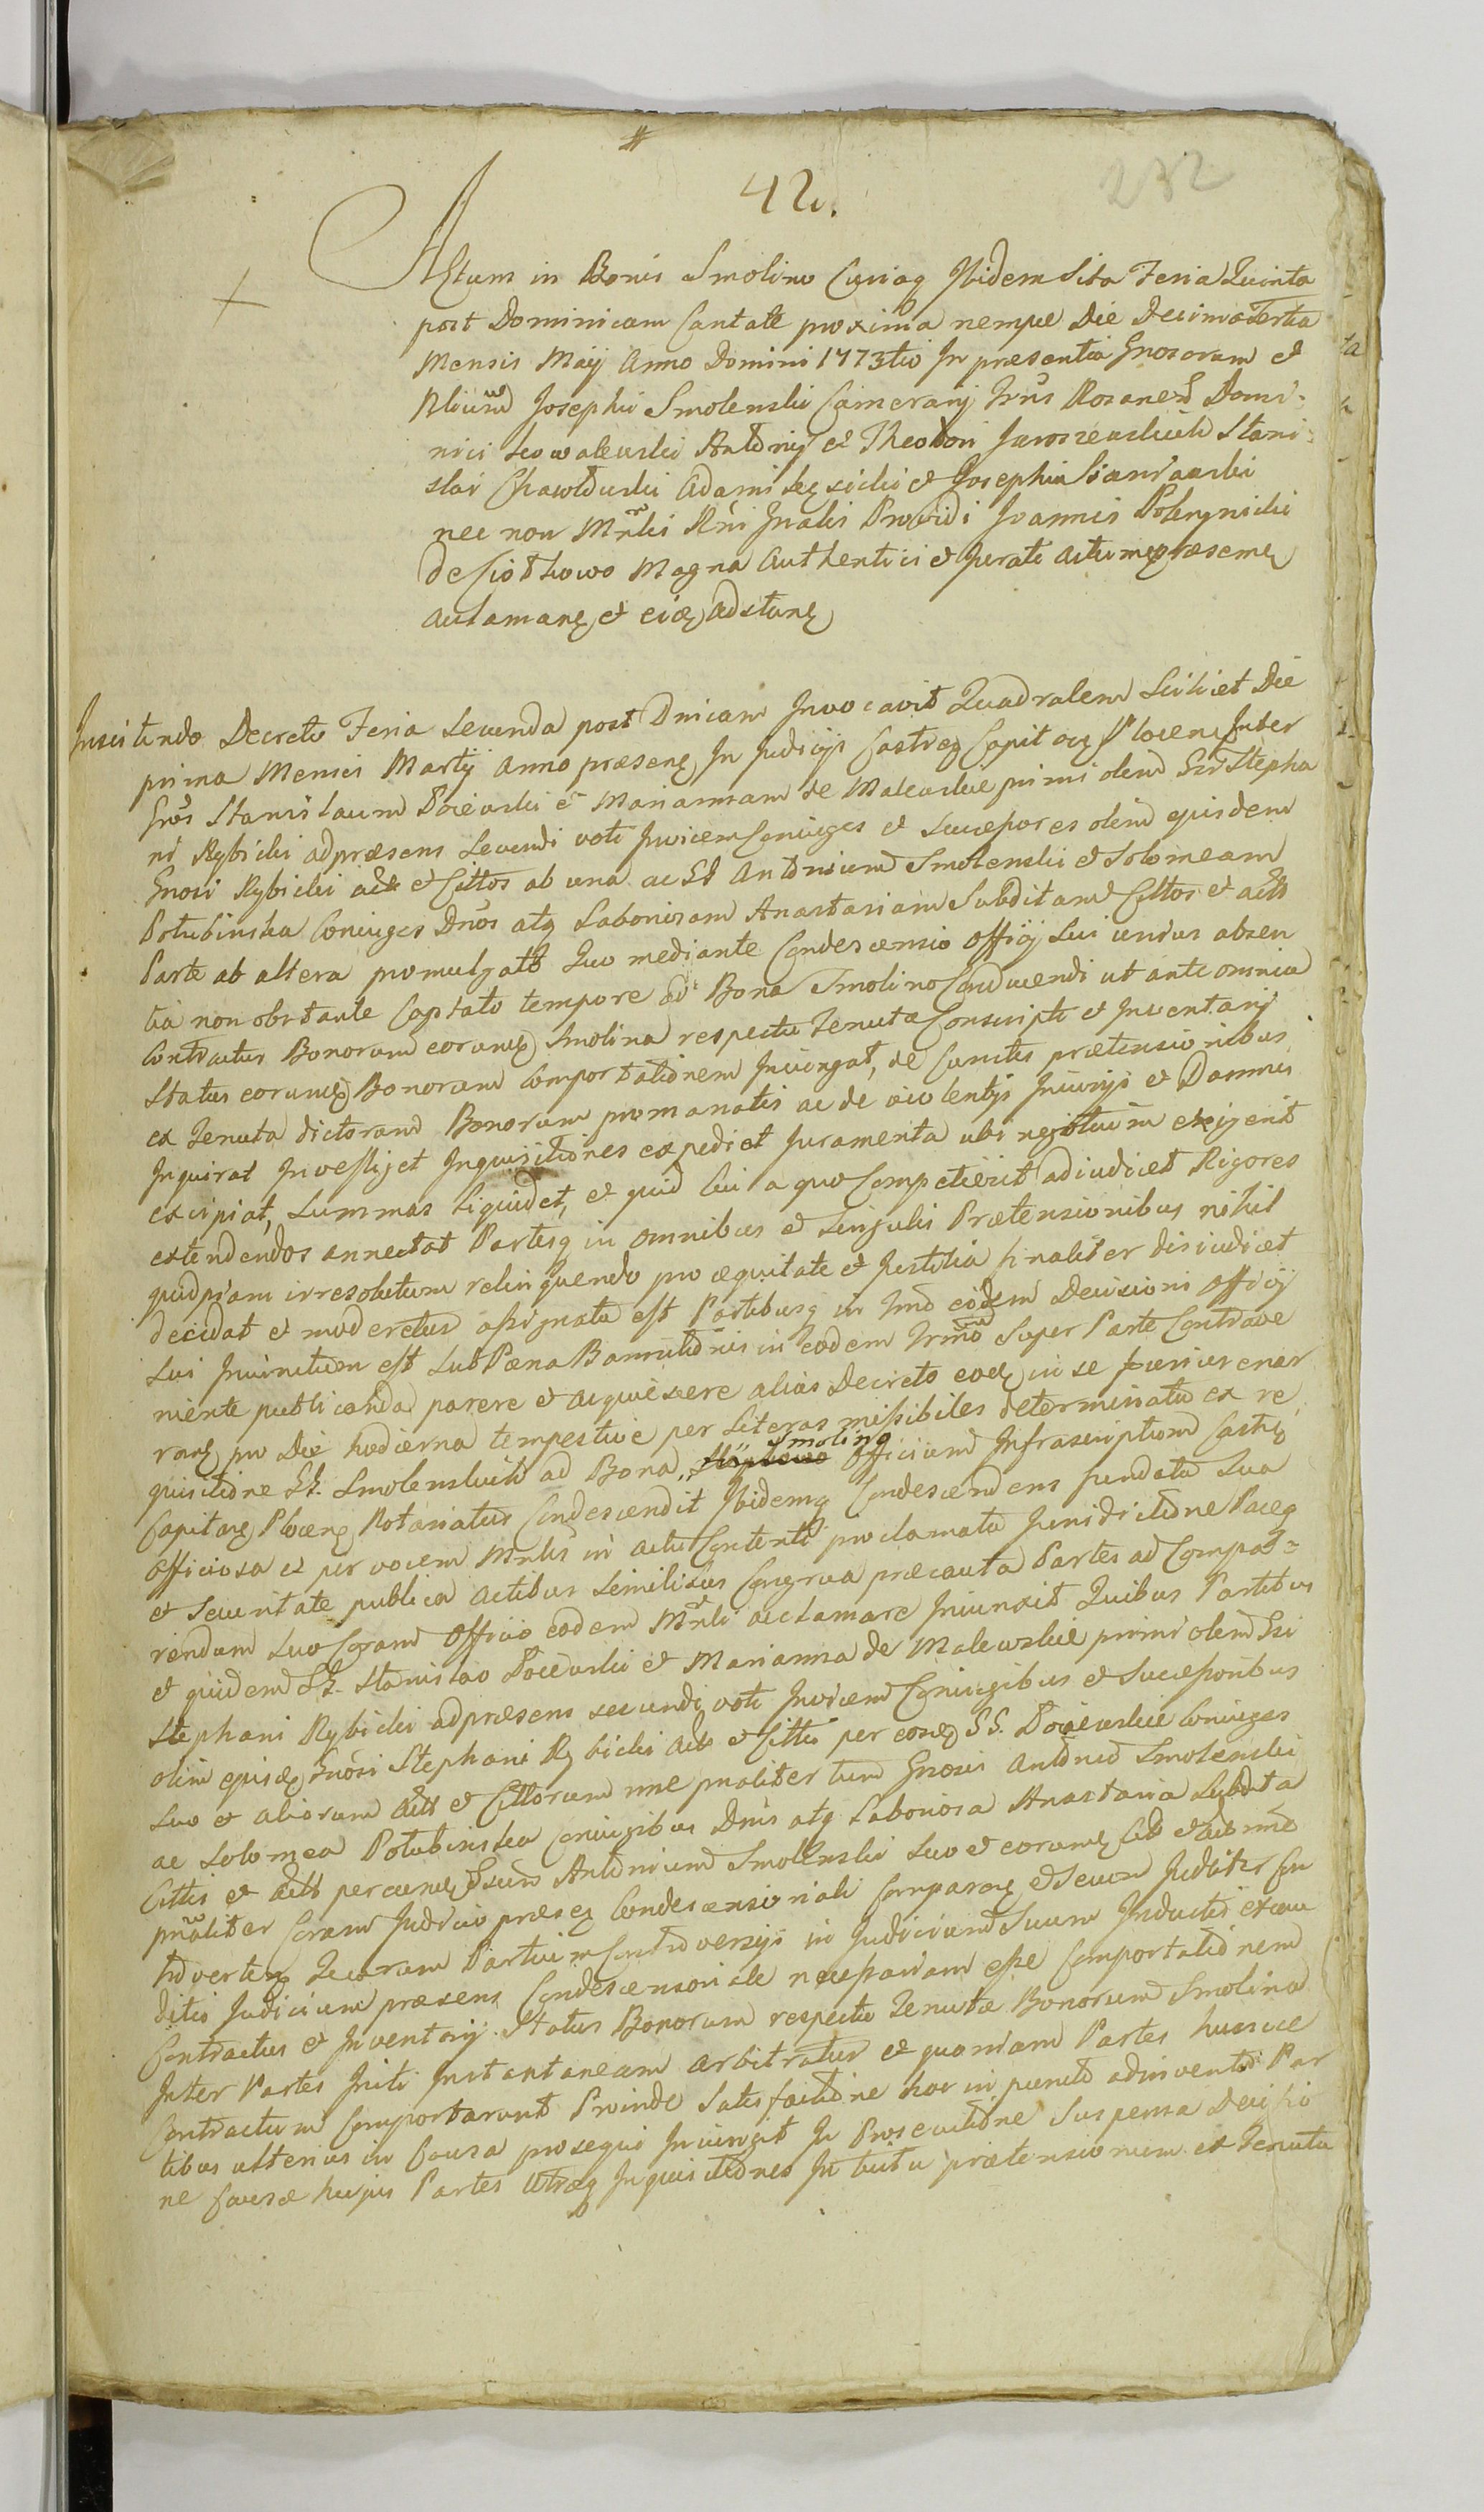 #
42.
232
Actum in Bonis Smolino Curiaq Ibidem Sita Feria Quinta
post Dominicam Cantate proxima nempe Die Decima Tertia
Mensis Maij Anno Domini 1773tio In præsentia Gnosorum et
Nlium Josephi Smolenski Camerarij Trrus Rosanen Domi-
nici Antonij et Theodori Jaroszewskich Stani-
slai Adami et Josephi
nec non Mrlis Rni Gnalis Providi Joannis
de Magna Authentici et Jurati actumq præsentem
aclamanq et eiq adstanq
Insistendo Decreto Feria Secunda post Dnicam Invocavit Quadralem Scilicet Die
prima Mensis Martij Anno præsenq In Judicijs Castreq Capitaq Plocenq Inter
Gnos Stanislaum et Mariannam de Malewskie primi olim Gsi Stepha
ni Rybicki adpræsens Secundi voti Invicem Coniuges et Successores olim ejusdem
Gnosi Rybicki acts et Cittos ab una ac GG Antonium Smolenski et Solomeam
Potubinska Coniuges Dnos atq Laboriosam Anastasiam Subditam Cittos et acts
Parte ab altera promulgato Quo mediante Condescensio Officij Sui unius absen
tia non obstante Captato tempore ad Bona Smolino Conducendi ut ante omnia
Contractus Bonorum eorumq Smolina respectu Tenutæ Conscripti et Inventarij
Status eorumq Bonorum Comportationem Iniungat, de Cunctis prætensionibus
ex Tenuta dictorum Bonorum promanatis ac de violentijs Iniurijs et Damnis
Inquirat Investiget Inquisitiones expediet Juramenta ubi negotium exigerit
excipiat, Summas liquidet, et quid Cui a quo Competierit adiudicet Rigores
extendendos annectat Partesq in omnibus et Singulis Prætensionibus nihil
quidpiam irresolutum relinquendo pro æquitate et Justitia finaliter disiudicet
decidat et moderetur assignata est Partibusq in Tmo eidem Decisioni Officij
Sui Iniunctum est Sub Pæna Bannitionis in eodem Trmo Super Parte Contrave
niente publicanda parere et acquiescere alias Decreto eoq in se fusius enar
ranq pro Die hodierna tempestive per Literas missibiles determinata ex re
quisitione GG. Smolenskich ad Bona Smolino Officium Infrascriptum Castrq
Capitanq Plocenq Notariatus Condescendit Ibidemq Condescendens fundata Sua
Officiosa et per vocem Mrlis in actu Contenti proclamata Jurisdictione Paceq
et Securitate publica actibus Similibus Congrua præcauta Partes ad Compa-
rendum Suo Coram Officio eodem Mrli acclamare Iniunxit Quibus Partibus
et quidem GG. Stanislao et Marianna de Malewskie primi olim Gsi
Stephani Rybicki adpræsens secundi voti Invicem Coniugibus et Successoribus
olim ejusq Gnosi Stephani Rybicki acts et Cittis per eosq GG. Coniuges
Suo et aliorum acts et Cittorum nne pnaliter tum Gnosis Antonio Smolenski
ac Solomea Potubinska Coniugibus Dnis atq Laboriosa Anastasia Subdita
Cittis et acts per eumq Gsum Antonium Smolenski Suo et eorumq
pnaliter Coram Judicio præsq Condescensionali Comparenq et Secum Judliter Con
trovertenq Quarum Partium Controversijs in Judicium Suum Inductis et exau
ditis Judicium præsens Condescensoriale necessariam esse Comportationem
Contractus et Inventarij Status Bonorum respectu Tenutæ Bonorum Smolina
Inter Partes Initi Instantaneam arbitratur et quoniam Partes hucusce
Contractum Comportarunt Proinde Satisfactione hoc in puncto adinventa Par
tibus ulterius in Causa prosequi Iniungit In Prosecutione Suspensa Decisio
ne Causæ hujus Partes Utræq Inquisitiones Intuitu prætensionum ex Tenuta